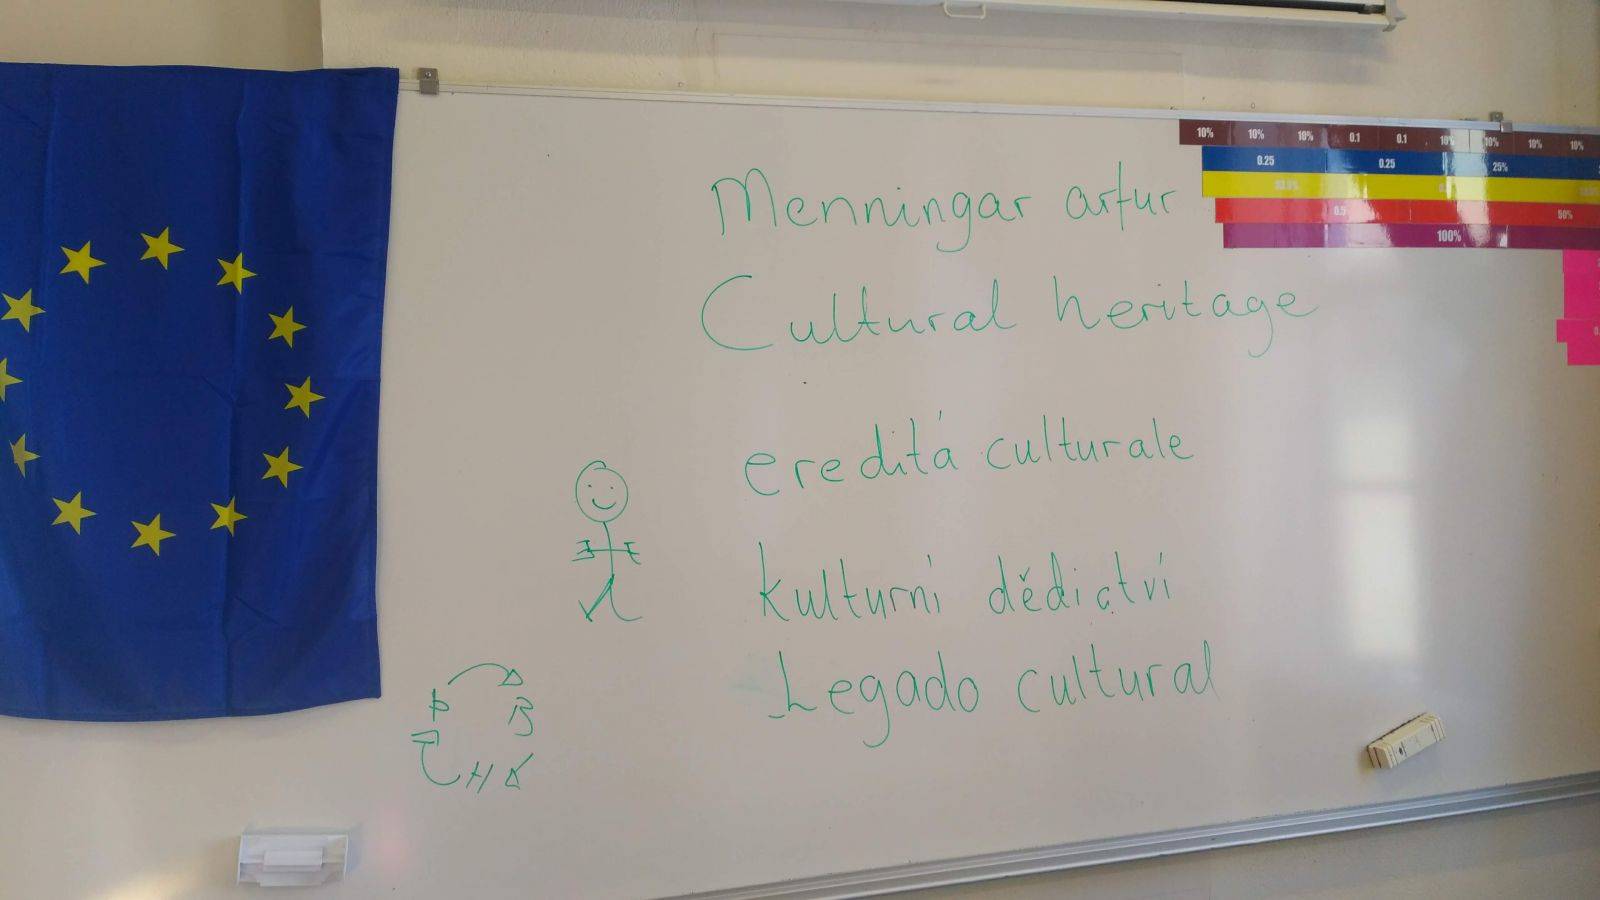 10% 10% 10% 0.1 0.1 10% 10% 10% 10%
0.25 0.25 25%
0.5 50%
100%
Menningar arfur
Cultural heritage
ereditá culturale
kulturní dědictví
Legado cultural
Þ B
H